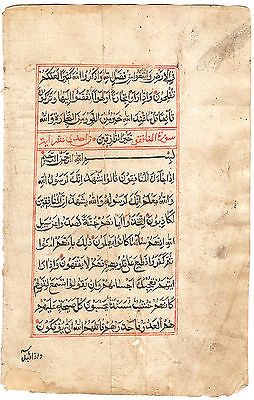 في الارض وابتغوا من فضل الله واذكروا الله كثيرا لعلكم
تفلحون واذا راوا تجارة او لهوا انفضوا اليها وتركوك
قائما قل ما عند الله خير من اللهو ومن التجارة والله
سورة المنافقين خير الرازقين احدى عشر اية
بسم الله الرحمن الرحيم
اذا جاءك المنافقون قالوا نشهد انك لرسول الله
والله يعلم انك لرسوله والله يشهد ان المنافقين
لكاذبون اتخذوا ايمانهم جنة فصدوا عن سبيل
الله انهم ساء ما كانوا يعملون ذلك بانهم امنوا
ثم كفروا فطبع على قلوبهم فهم لا يفقهون واذا را
يتهم تعجبك اجسامهم وان يقولوا تسمع لقولهم
كانهم خشب مسندة يحسبون كل صيحة عليهم
هم العدو فاحذرهم قاتلهم الله انى يؤفكون
واذا قيل